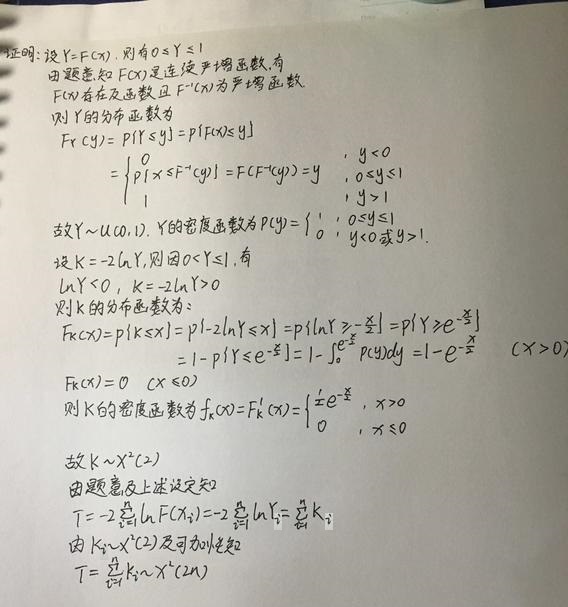 证明:设Y=F(x),则有0≤Y≤1
由题意知F(x)是连续严增函数,有
F(x)存在反函数且F⁻¹(x)为严增函数.
则Y的分布函数为
Fʏ(y)=P{Y≤y}=P{F(x)≤y}
={ 0 , y<0
P{x≤F⁻¹(y)}=F(F⁻¹(y))=y , 0≤y≤1
1 , y>1
故Y~U(0,1). Y的密度函数为P(y)={ 1 , 0≤y≤1
0 , y<0或y>1.
设K=-2lnY,则因0<Y≤1,有
lnY<0, K=-2lnY>0
则K的分布函数为:
Fₖ(x)=P{K≤x}=P{-2lnY≤x}=P{lnY≥-x/2}=P{Y≥e^{-x/2}}
=1-P{Y≤e^{-x/2}}=1-∫₀^{e^{-x/2}}P(y)dy=1-e^{-x/2} (x>0)
Fₖ(x)=0 (x≤0)
则K的密度函数为fₖ(x)=F'ₖ(x)={ 1/2 e^{-x/2} , x>0
0 , x≤0
故K~X²(2)
由题意及上述设定知
T=-2∑ᵢ₌₁ⁿlnF(Xᵢ)=-2∑ᵢ₌₁ⁿlnYᵢ=∑ᵢ₌₁ⁿKᵢ
由Kᵢ~X²(2)及可加性知
T=∑ᵢ₌₁ⁿKᵢ~X²(2n)